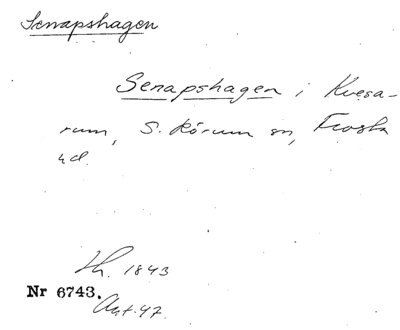 Senapshagen
Senapshagen i Kvesa-
rum, S. Rörum sn, Frosta
hd.
Lh. 1843
Nr 6743.
Akt. 47.